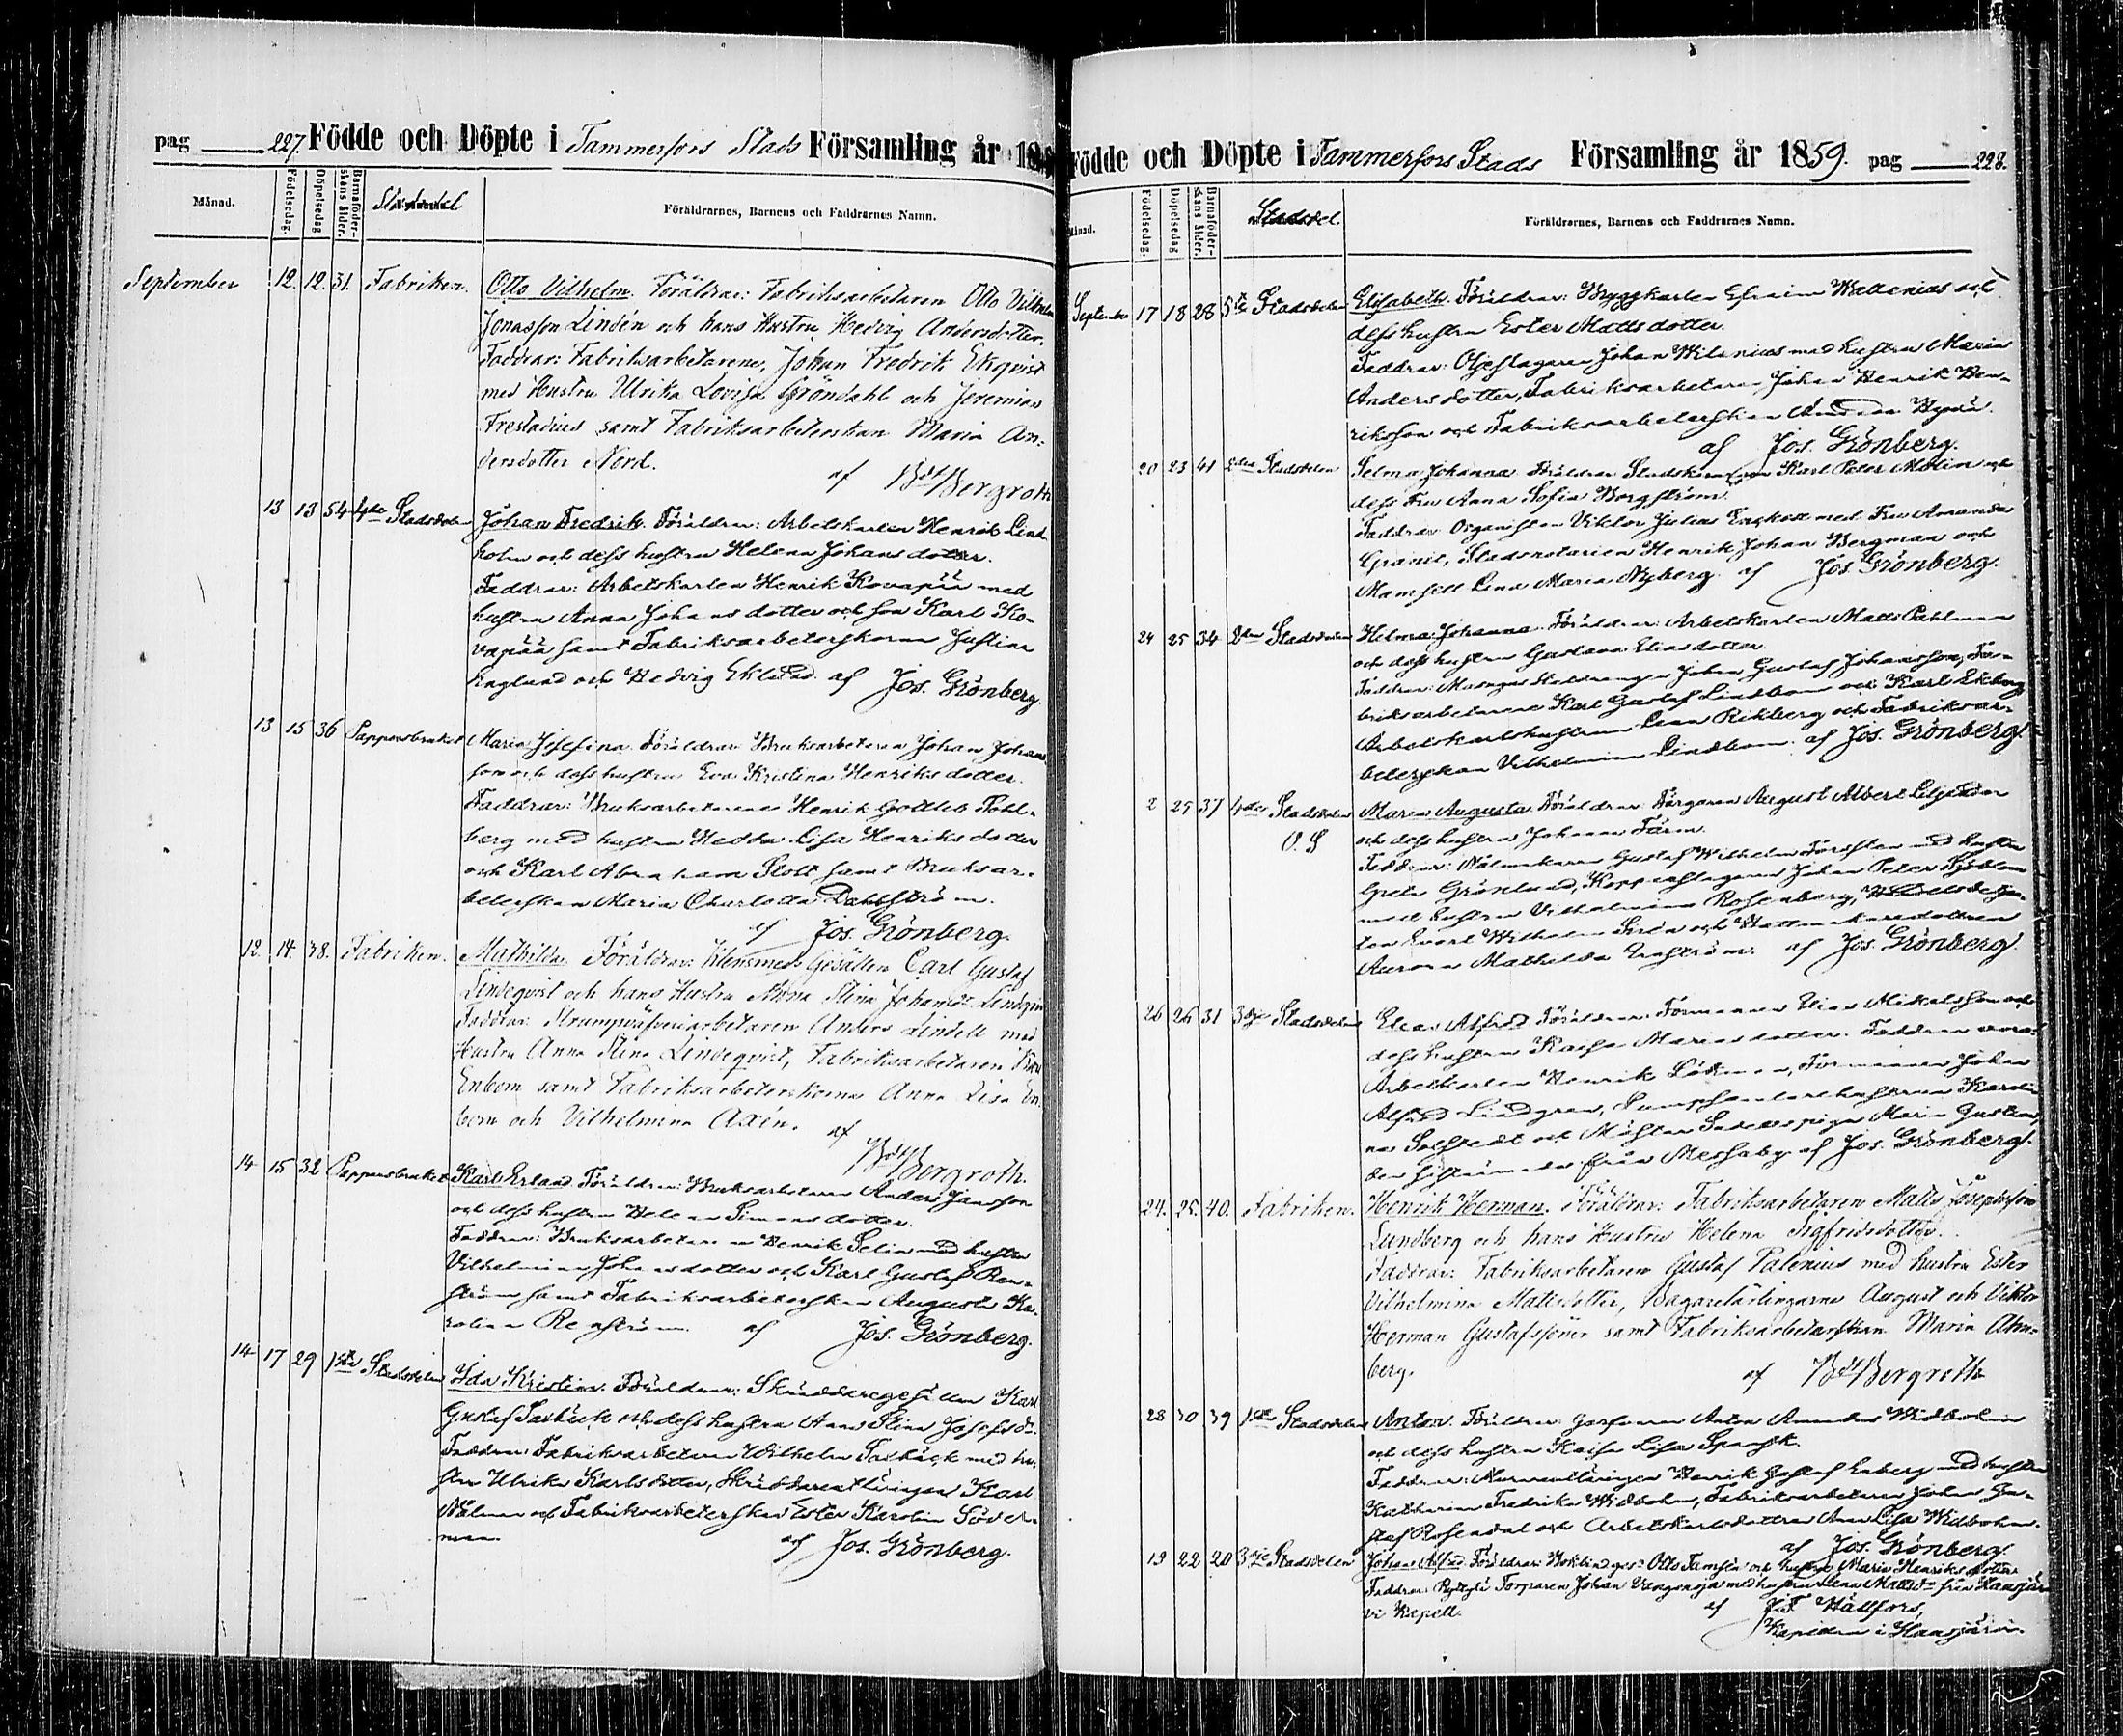 pag 227. Födde och Döpte i Tammerfors Stads Församling år 18
Månad. Födelsedag. Döpelsedag Barnaföderskans ålder. Stadsdel Föräldrarnes, Barnens och Faddrarnes Namn.
September 12. 12. 31. Fabriken. Otto Vilhelm. Föräldrar: Fabriksarbetaren Otto Vilhelm
Jonasson Lindén och hans Hustru Hedvig Andersdotter.
Faddrar: Fabriksarbetarene, Johan Fredrik Ekqvist
med Hustru Ulrika Lovisa Gröndahl och Jeremias
Frestadius samt Fabriksarbeterskan Maria An-
dersdotter Nord.
af Bergroth
13 13 54 4de Stadsdelen Johan Fredrik. Föräldrar: Arbetskarlen Henrik Lind
holm och dess hustru Helena Johansdotter.
Faddrar: Arbetskarlen Henrik Kovapää med
hustru Anna Johansdotter och son Karl Ko-
vapää samt Fabriksarbeterskorna Justina
Englund och Hedvig Eklund. af Jos. Grönberg.
13 15 36 Pappersbruket Maria Josefina. Föräldrar: Bruksarbetaren Johan Johans
son och dess hustru Eva Kristina Henriksdotter.
Faddrar: Bruksarbetarene Henrik Gottlieb Pohl-
berg med hustru Hedda Lisa Henriksdotter
och Karl Abraham Slott samt Bruksar-
beterskan Maria Charlotta Dahlström.
af Jos. Grönberg.
12. 14. 38. Fabriken. Mathilda. Föräldrar: Klensmeds Gesällen Carl Gustaf
Lindeqvist och hans Hustru Anna Stina Johansdr Lindqvist
Faddrar: Strumpväfveriarbetaren Anders Lindell med
Hustru Anna Stina Lindeqvist, Fabriksarbetaren
Enbom samt Fabriksarbeterskorna Anna Lisa En-
bom och Vilhelmina Axén. af
Bergroth.
14 15 32 Pappersbruket Karl Erland. Föräldrar: Bruksarbetaren Anders Jansson
och dess hustru Helena Simonsdotter.
Faddrar: Bruksarbetaren Henrik Selin med hustru
Vilhelmina Johansdotter och Karl Gustaf Ren-
ström samt Fabriksarbeterskan Augusta Ka-
rolina Renström. af Jos. Grönberg.
14 17 29 1sta Stadsdelen Ida Kristina. Föräldrar: Skräddaregesällen Karl
Gustaf och dess hustru Anna Stina Josefsdr.
Faddrar: Fabriksarbetaren Wilhelm med hu-
stru Ulrika Karlsdotter, Skräddarelärlingen Karl
Nålman och Fabriksarbeterskan Ester Karolin Söder-
man. af Jos. Grönberg.
Födde och Döpte i Tammerfors Stads Församling år 1859. pag 228.
Månad. Födelsedag. Döpelsedag Barnaföderskans ålder. Stadsdel. Föräldrarnes, Barnens och Faddrarnes Namn.
September 17 18 28 5te Stadsdelen Elisabeth. Föräldrar: Bryggkarlen Efraim Wallenius och
dess hustru Ester Mattsdotter.
Faddrar: Oljeslagaren Johan Wilenius med hustru Maria
Andersdotter, Fabriksarbetaren Johan Henrik Hen-
riksson och Fabriksarbeterskan Amanda
af Jos. Grönberg.
20 23 41 2dra Stadsdelen Selma Johanna. Föräldrar: Karl Peter Molin och
dess Fru Anna Sofia Borgström.
Faddrar: Organisten Viktor Julius Enqvist med Fru Amanda
Granit, Stadsnotarien Henrik Johan Bergman och
Mamsell Lina Maria Nyberg. af Jos. Grönberg.
24 25 34 2dra Stadsdelen Helma Johanna. Föräldrar: Arbetskarlen Matts Pahlman
och dess hustru Gustava Eliasdotter.
Faddrar: Johan Gustaf Johansson, Fa-
briksarbetarene Karl Gustaf Lindbom och Karl Ekberg
Arbetskarlshustrun Lena Rikberg och Fabriksar-
beterskan Vilhelmina Lindbom. af Jos. Grönberg.
2 25 37 4de Stadsdelen Maria Augusta. Föräldrar: Färgaren August Albert Liljander
O. S och dess hustru Johanna Färm.
Faddrar: Gustaf Wilhelm med hustru
Greta Grönlund, Kopparslagaren Johan Peter
med hustru Vilhelmina Rosenberg,
Evert Wilhelm Sirén och Hattmakaredottren
Aurora Mathilda Engström. af Jos. Grönberg.
26 26 31 3dje Stadsdelen Elias Alfred. Föräldrar: Formannen Elias Mikelsson och
dess hustru Kaisa Mariasdotter. Faddrar voro:
Arbetskarlen Henrik Löfman, Formannen Johan
Alfred Lindgren, hustrun Karoli-
na Solstedt och Maria Gustava
från Messuby. af Jos. Grönberg.
24. 25. 40. Fabriken. Henrik Herman. Föräldrar: Fabriksarbetaren Matts Josephsson
Lundberg och hans Hustru Helena Sigfridsdotter.
Faddrar: Fabriksarbetaren Gustaf Palenius med hustru Ester
Vilhelmina Mattsdotter, Bagarelärlingarne August och Viktor
Herman Gustafssöner samt Fabriksarbeterskan Maria Ahl-
berg. af Bergroth
28 30 39 1sta Stadsdelen Anton. Föräldrar: Garfvaren Anton Amandus Widbohm
och dess hustru Kaisa Lisa Spansk.
Faddrar: Henrik Gustaf Enberg med hustru
Katharina Fredrika Widbohm, Fabriksarbetaren Johan Gu-
staf Rosendal och Arbetskarlsdottren Anna Lisa Widbohm.
af Jos. Grönberg.
19 22 20 3dje Stadsdelen Johan Alfred. Föräldrar: Bokbind.ges. Otto Tamsén och hustru Maria Henriksdotter.
Faddrar: Torparen Johan med hustru Lena Mattsdr från Haapjär
vi Kapell. af J. F. Hällfors,
Kapellan i Haapjärvi.